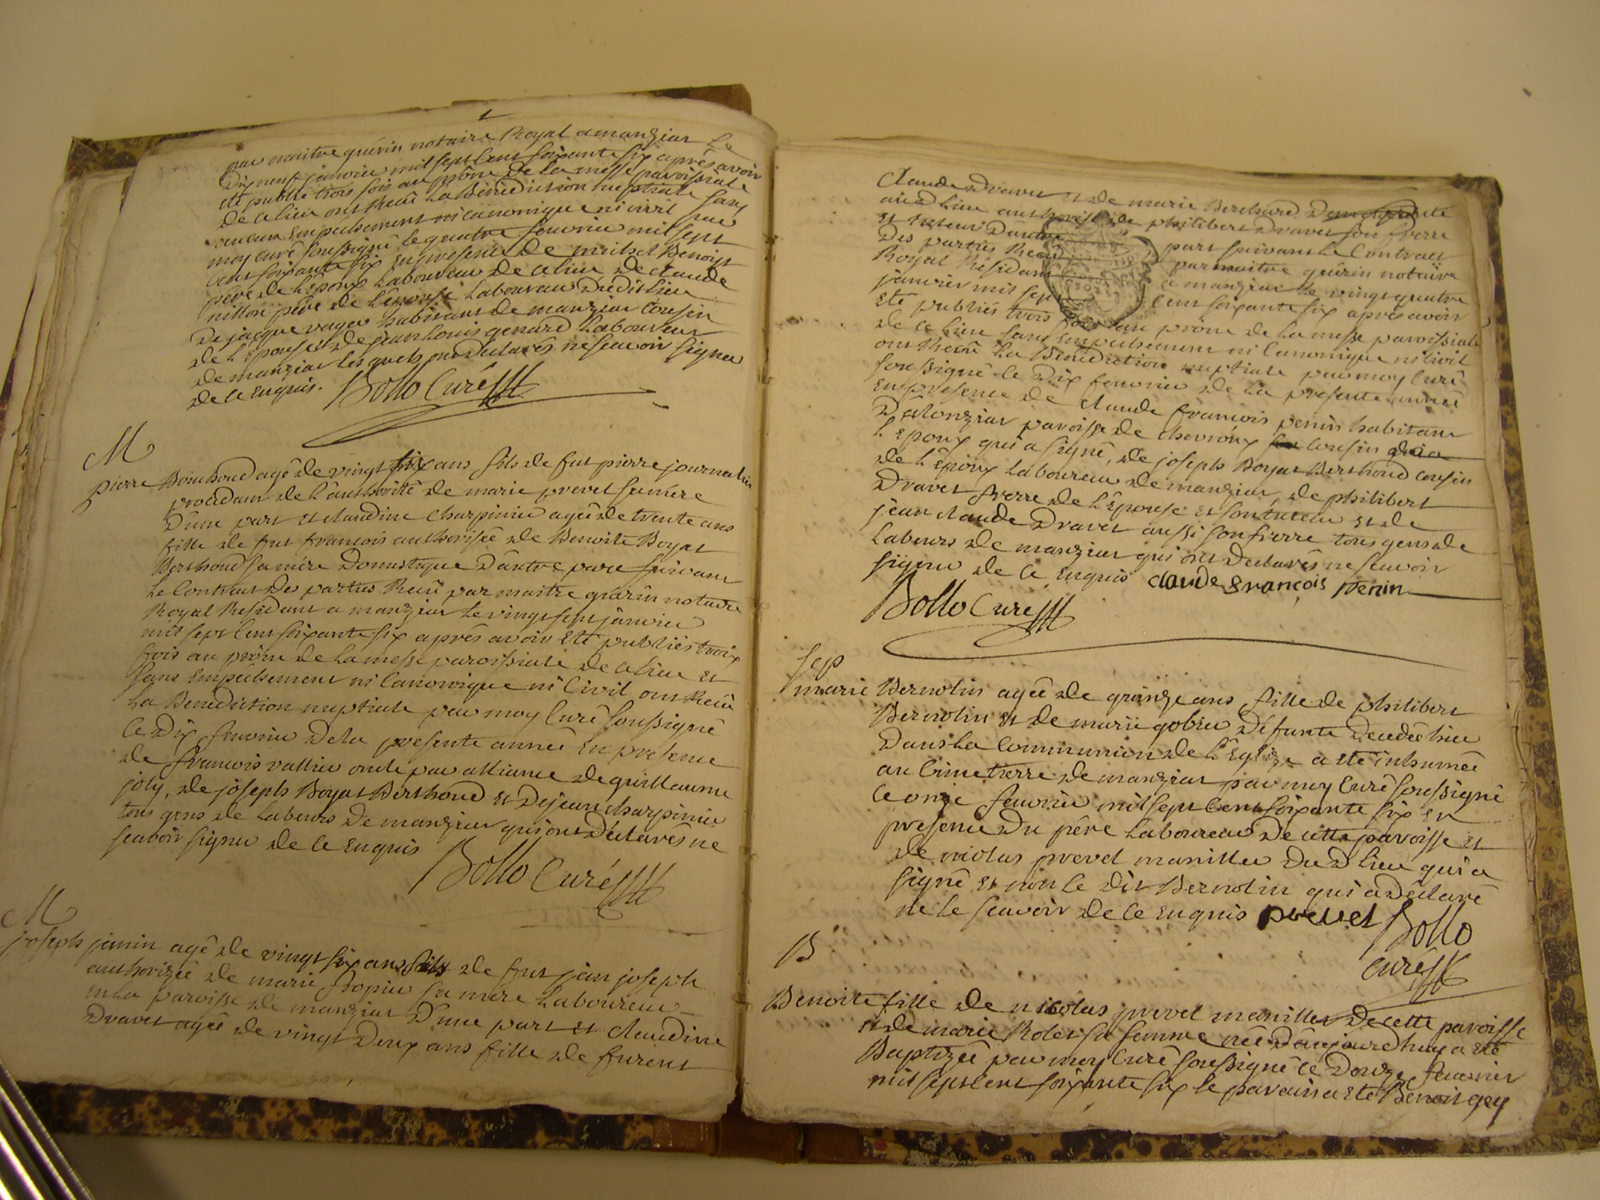 par maitre guérin notaire Royal a manziat le
Dix neuf janvier mil sept cent soixante six après avoir
été publié trois fois au prône de la messe paroissiale
de ce lieu ont Receu La Bénédiction nuptiale sans
aucun Empechement ni canonique ni civil par
moy curé soussigné le quatre fevrier mil sept
cent soixante six En présence de Benoist
père de l'Epoux Laboureur de ce lieu de claude
père de l'Epouse Laboureur dudit Lieu
De jacque voyer habitant de manziat cousin
de L'Epouse et de jean Louis genard Laboureur
de manziat Lesquels ont declarés ne scavoir signer
de ce Enquis. Bollo Curé
M
pierre Bouchoud agé de vingt six ans fils de fut pierre journalier
procedant de L'authorité de marie prevet sa mère
D'une part et claudine Charpinier agée de trente ans
fille de fut francois authorisée de Benoite Boyat
Berthoud sa mère Domestique D'autre part suivant
Le Contrat des parties Receu par maitre guérin notaire
Royal Résidant a manziat Le vingt sept janvier
mil sept cent soixante six après avoir Eté publiés trois
fois au prône de La messe paroissiale de ce lieu et
sans Empechement ni Canonique ni Civil ont Receu
La Bénédiction nuptiale par moy Curé soussigné
ce Dix fevrier de la presente année En présence
de francois vallier oncle par alliance de guillaume
joly, de joseph Boyat Berthoud et de jean charpinier
tous gens de Labeurs de manziat qui ont Déclarés ne
scavoir signer de ce Enquis Bollo Curé
M
joseph janin agé de vingt six ans fils de fut jean joseph
authorisé de marie sa mère Laboureur
en la paroisse de manziat D'une part et claudine
Dravet agée de vingt Deux ans fille de furent
Claude Dravet et de marie Berthoud
audit Lieu authorisée de philibert Dravet son frere
et tuteur D'autre part suivant Le Contract
Des parties Receu par maitre guérin notaire
Royal Résidant a manziat Le vingt quatre
janvier mil sept cent soixante six après avoir
Eté publiés trois fois au prône de la messe paroissiale
de ce lieu sans Empechement ni Canonique ni Civil
ont Receu La Bénédiction nuptiale par moy Curé
soussigné le Dix fevrier de La presente année
En présence de claude francois penin habitant
D'alonziat paroisse de chevroux cousin de
L'Epoux qui a signé, de joseph Boyat Berthoud cousin
de L'Epoux Laboureur de manziat, de philibert
Dravet frere de L'Epouse et son tuteur et de
jean claude Dravet aussi son frere tous gens de
Labeurs de manziat qui ont Declarés ne scavoir
signer de ce Enquis claude François Penin
Bollo Curé
Sep
marie Bernolin agée de quinze ans fille de philibert
Bernolin et de marie gobier Défunte Decedée hier
Dans La Communion de L'Eglise a été inhumée
au Cimetierre de manziat par moy Curé soussigné
Ce onze fevrier mil sept cent soixante six En
présence Du père Laboureur de cette paroisse et
de nicolas prevet manillier Du D Lieu qui a
signé et non le Dit Bernolin qui a Déclaré
ne le scavoir de ce Enquis prevet Bollo
Curé
B
Benoite fille de nicolas prevet manillier de cette paroisse
et de marie Rolet sa femme née D'aujourd'huy a été
Baptizée par moy Curé soussigné ce Douze fevrier
mil sept cent soixante six le parain a été Benoit gey